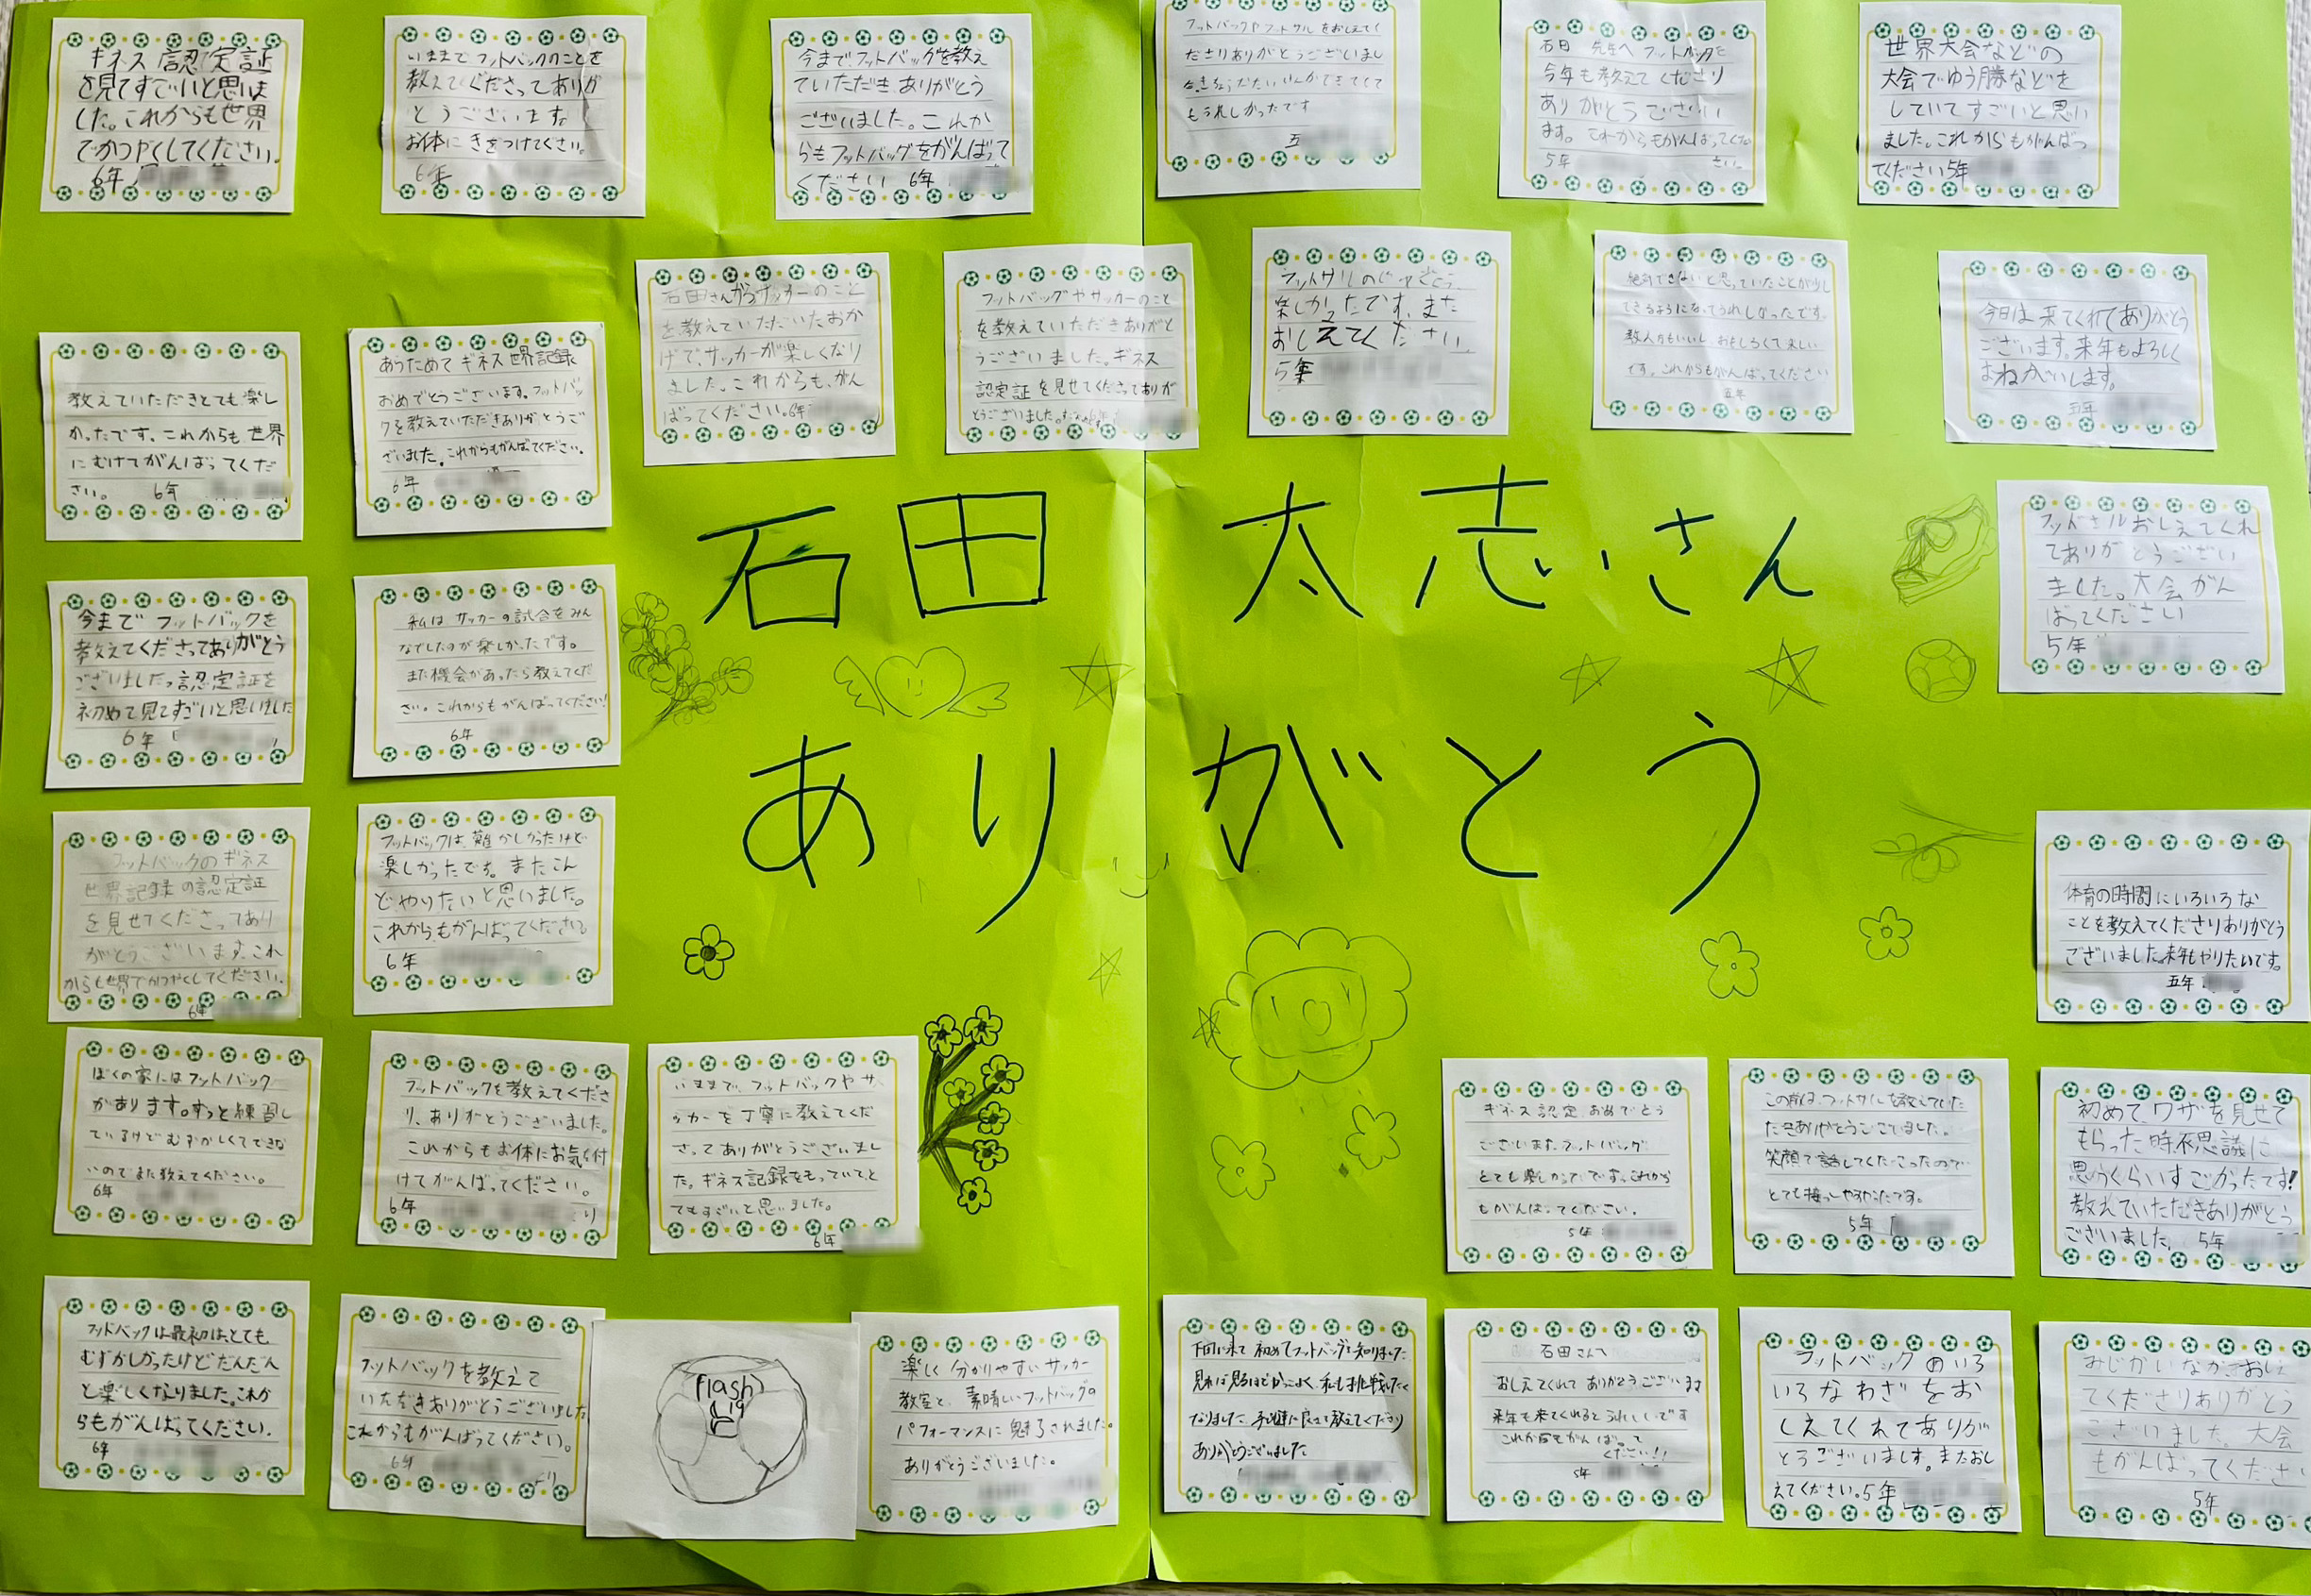 ギネス認定証
を見てすごいと思いま
した。これからも世界
でかつやくしてください。
6年
いままでフットバックのことを
教えてくださってありが
とうございます。
お体にきをつけてください。
6年
今までフットバッグを教え
ていただきありがとう
ございました。これか
らもフットバッグをがんばって
ください 6年
フットバックやフットサルをおしえてく
ださりありがとうございまし
もうれしかったです
五
石田 先生へ フットバックを
今年も教えてくださり
ありがとうござい
ます。これからもがんばってくだ
さい。
5年
世界大会などの
大会でゆう勝などを
していてすごいと思い
ました。これからもがんばっ
てください5年
石田さんからサッカーのこと
を教えていただいたおか
げで、サッカーが楽しくなり
ました。これからも、がん
ばってください。6年
フットバッグやサッカーのこと
を教えていただきありがと
うございました。ギネス
認定証を見せてくださってありが
とうございました。
フットサルのじゅぎょう
楽しかったです。また
おしえてください。
5年
絶対できないと思っていたことが少し
できるようになってうれしかったです。
教え方もいいし、おもしろくて楽しい
です。これからもがんばってください
五年
今日は来てくれてありがとう
ございます。来年もよろしく
おねがいします。
五年
教えていただきとても楽し
かったです。これからも世界
にむけてがんばってくだ
さい。 6年
あらためてギネス世界記録
おめでとうございます。フットバッ
クを教えていただきありがとうご
ざいました。これからもがんばってください。
6年
石田 太志さん
ありがとう
フットサルおしえてくれ
てありがとうござい
ました。大会がん
ばってください
5年
今までフットバックを
教えてくださってありがとう
ございました。認定証を
初めて見てすごいと思いました
6年
私はサッカーの試合をみん
なでしたのが楽しかったです。
また機会があったら教えてくだ
さい。これからもがんばってください!
6年
フットバックのギネス
世界記録の認定証
を見せてくださってあり
がとうございます。これ
からも世界でかつやくしてください。
6年
フットバックは、難かしかったけど
楽しかったです。またこん
どやりたいと思いました。
これからもがんばってください。
6年
体育の時間にいろいろな
ことを教えてくださりありがとう
ございました。来年もやりたいです。
五年
ぼくの家にはフットバック
があります。ずっと練習し
ているけどむずかしくてできな
いのでまた教えてください。
6年
フットバックを教えてくださ
り、ありがとうございました。
これからもお体にお気を付
けてがんばってください。
6年 より
いままで、フットバックやサ
ッカーを丁寧に教えてくだ
さってありがとうございまし
た。ギネス記録をもっていてと
てもすごいと思いました。
6年
ギネス認定おめでとう
ございます。フットバッグ
とても楽しかったです。これから
もがんばってください。
5年
この前は、フットサルを教えていた
だきありがとうございました。
笑顔で話してくださったので
とても接っしやすかったです。
5年
初めて、ワザを見せて
もらった時、不思議に
思うくらいすごかったです!
教えていただきありがとう
ございました。 5年
フットバックは最初は、とても
むずかしかったけどだんだん
と楽しくなりました。これか
らもがんばってください。
6年
フットバックを教えて
いただきありがとうございました
これからもがんばってください。
6年 より
flash
19
楽しく分かりやすいサッカー
教室と、素晴しいフットバッグの
パフォーマンスに魅了されました。
ありがとうございました。
初めてフットバッグを知りました
見れば見るほどかっこよく、私も挑戦したく
なりました。丁寧に教えてくださり
ありがとうございました
石田さんへ
おしえてくれてありがとうございます
来年も来てくれるとうれしいです
これからもがんばって
ください!!
5年
フットバックのいろ
いろなわざをお
しえてくれてありが
とうございます。またおし
えてください。5年
みじかいなかおしえ
てくださりありがとう
ございました。大会
もがんばってくださ
5年